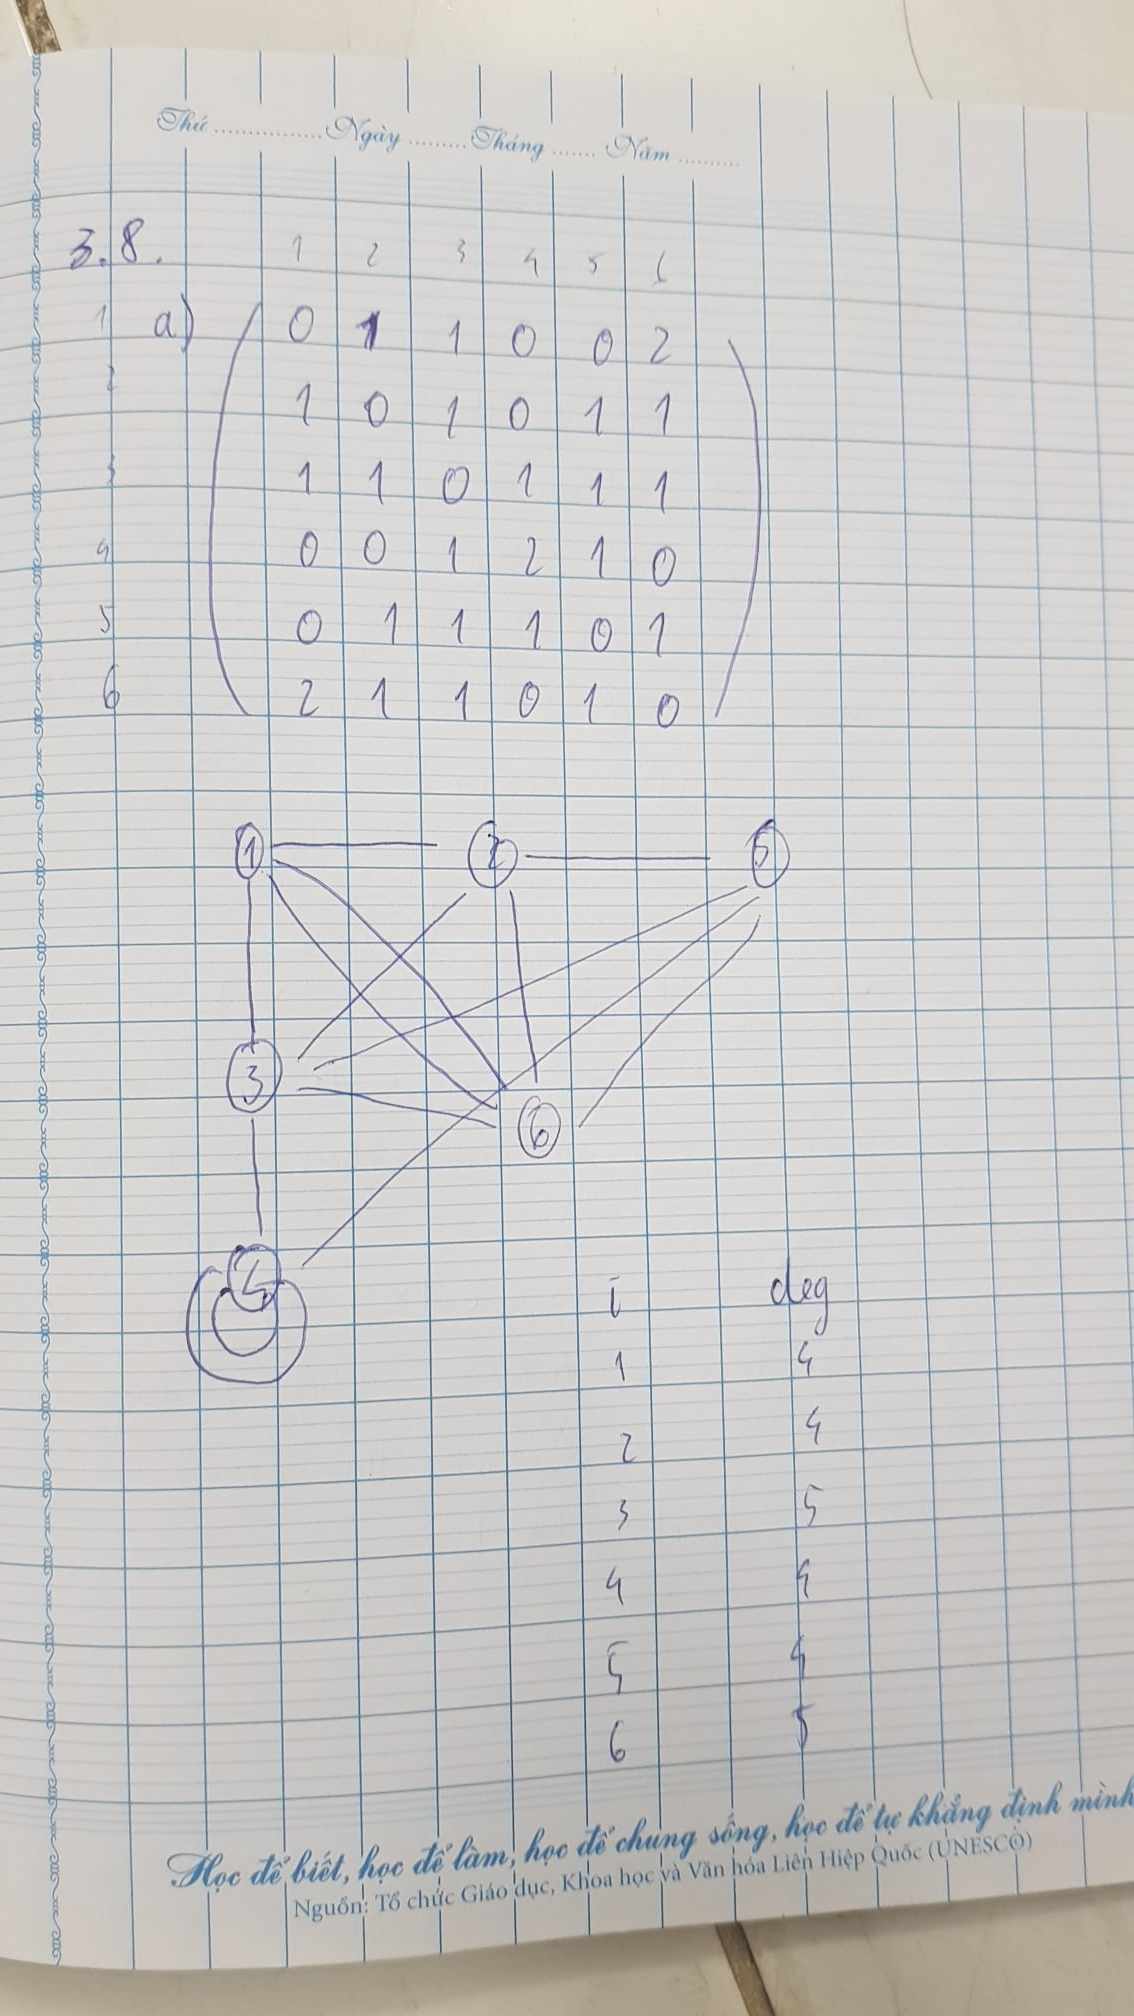 Thứ ................. Ngày ......... Tháng ....... Năm ..........
3.8. 1 2 3 4 5 6
1 a) 0 1 1 0 0 2
2 1 0 1 0 1 1
3 1 1 0 1 1 1
4 0 0 1 2 1 0
5 0 1 1 1 0 1
6 2 1 1 0 1 0
1 2 5
3 6
4
i deg
1 4
2 4
3 5
4 4
5 4
6 5
Học để biết, học để làm, học để chung sống, học để tự khẳng định mình
Nguồn: Tổ chức Giáo dục, Khoa học và Văn hóa Liên Hiệp Quốc (UNESCO)